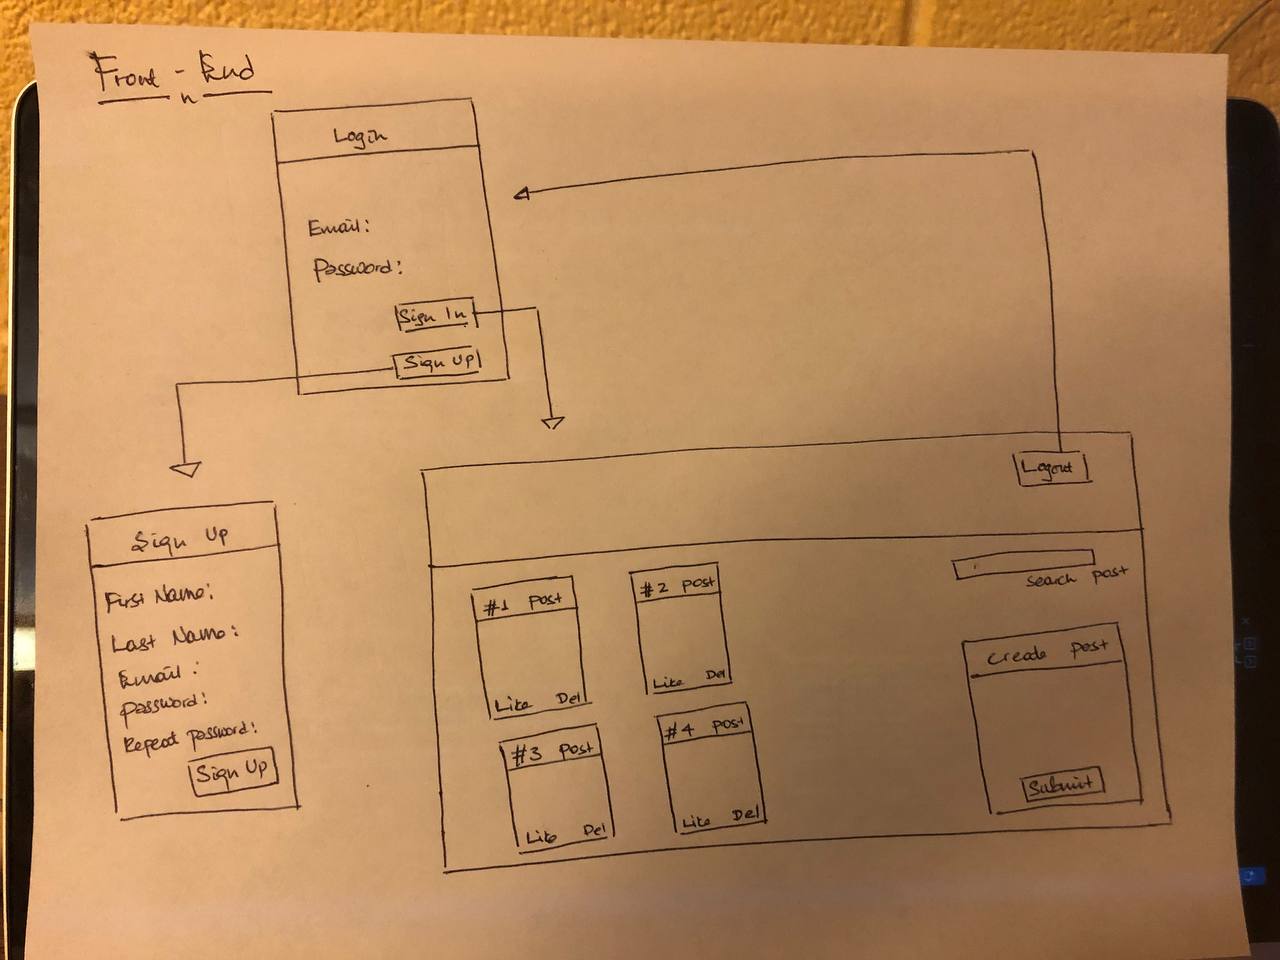 Front-End
Login
Email:
Password:
Sign In
Sign Up
Sign Up
First Name:
Last Name:
Email:
Password:
Repeat Password:
Sign Up
Logout
search post
#1 Post
Like Del
#2 Post
Like Del
#3 Post
Like Del
#4 Post
Like Del
create post
Submit